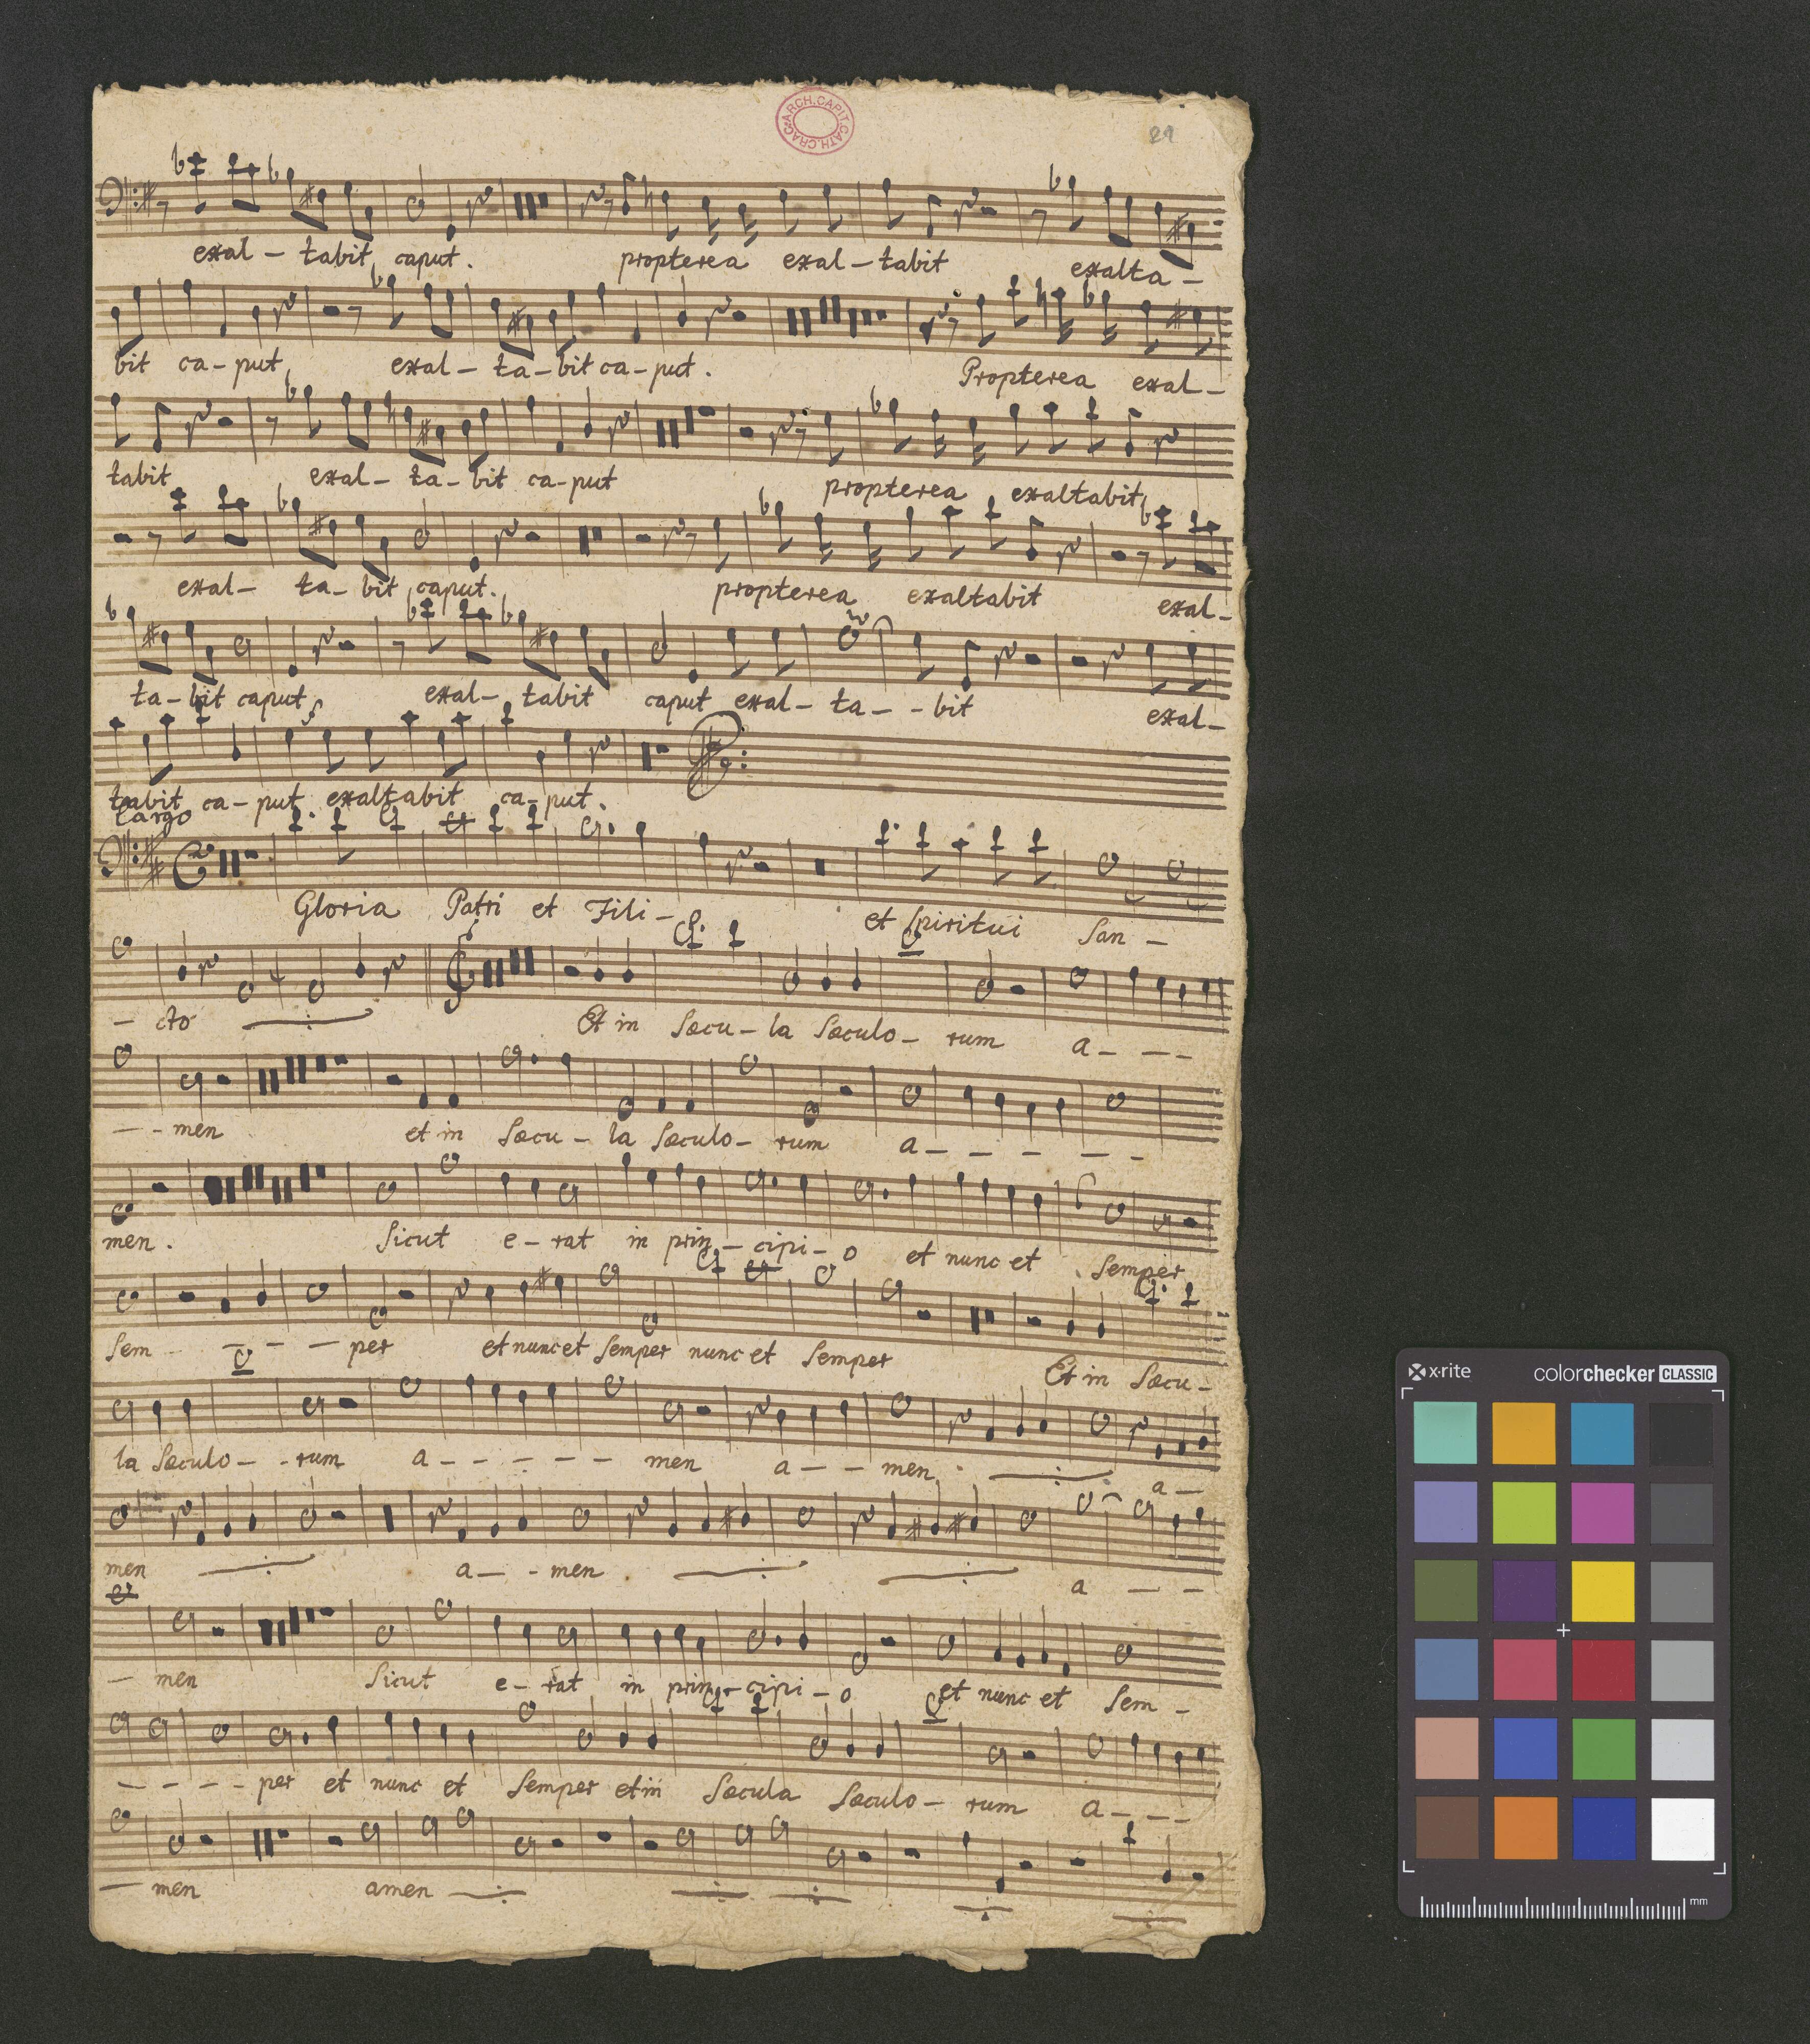 ARCH.CAPIT.CATH.CRAC.
21
exal - tabit caput. propterea exal - tabit exalta -
bit ca - put, exal - ta - bit ca - put. Propterea exal -
tabit exal - ta - bit ca - put propterea exaltabit
exal - ta - bit caput. propterea exaltabit exal -
ta - bit caput exal - tabit caput exal - ta - - bit exal -
tabit ca - put exaltabit ca - put.
Largo
Gloria Patri et Fili - et Spiritui San -
- cto Et in Sæcu - la Sæculo - rum a - - -
- - men et in Sæcu - la Sæculo - rum a - - - - -
men. Sicut e - rat in prin - cipi - o et nunc et Semper
Sem - - - - per et nunc et Semper nunc et Semper Et in Sæcu -
la Sæculo - - rum a - - - - - - men a - - men. a -
men a - - men a - -
- men Sicut e - rat in prin - cipi - o et nunc et Sem -
- - - - per et nunc et Semper et in Sæcula Sæculo - rum a - - -
- men amen
x-rite colorchecker CLASSIC
mm